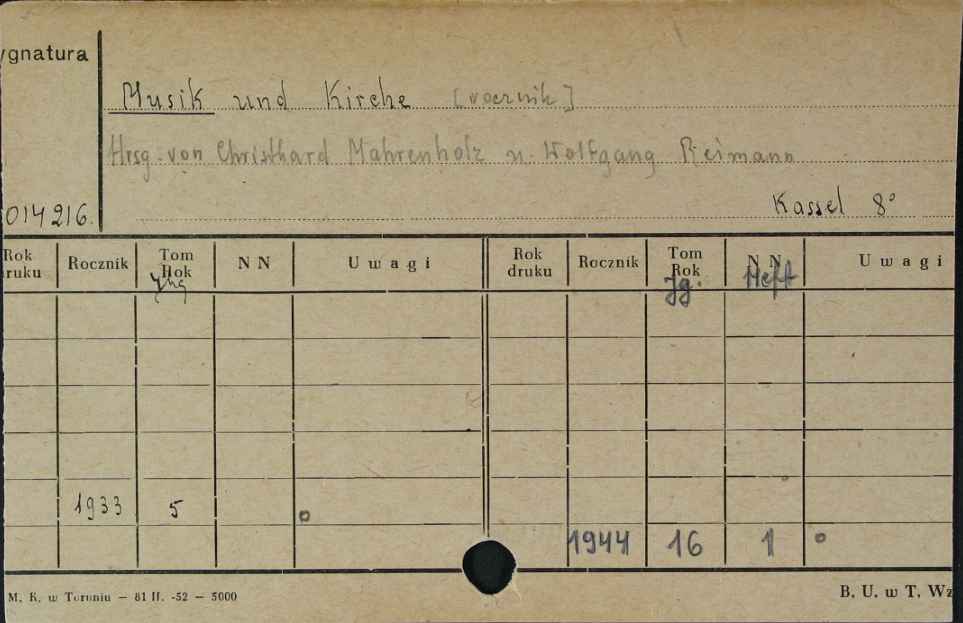 ygnatura
Musik und Kirche [rocznik]
Hrsg. von Christhard Mahrenholz u. Wolfgang Reimann
014216.
Kassel 8°
Rok druku Rocznik Tom Rok NN Uwagi Rok druku Rocznik Tom Rok NN Uwagi
Jhg Jg. Heft
1933 5
1944 16 1
M. K. w Toruniu — 81 II. -52 — 5000
B. U. w T. Wz